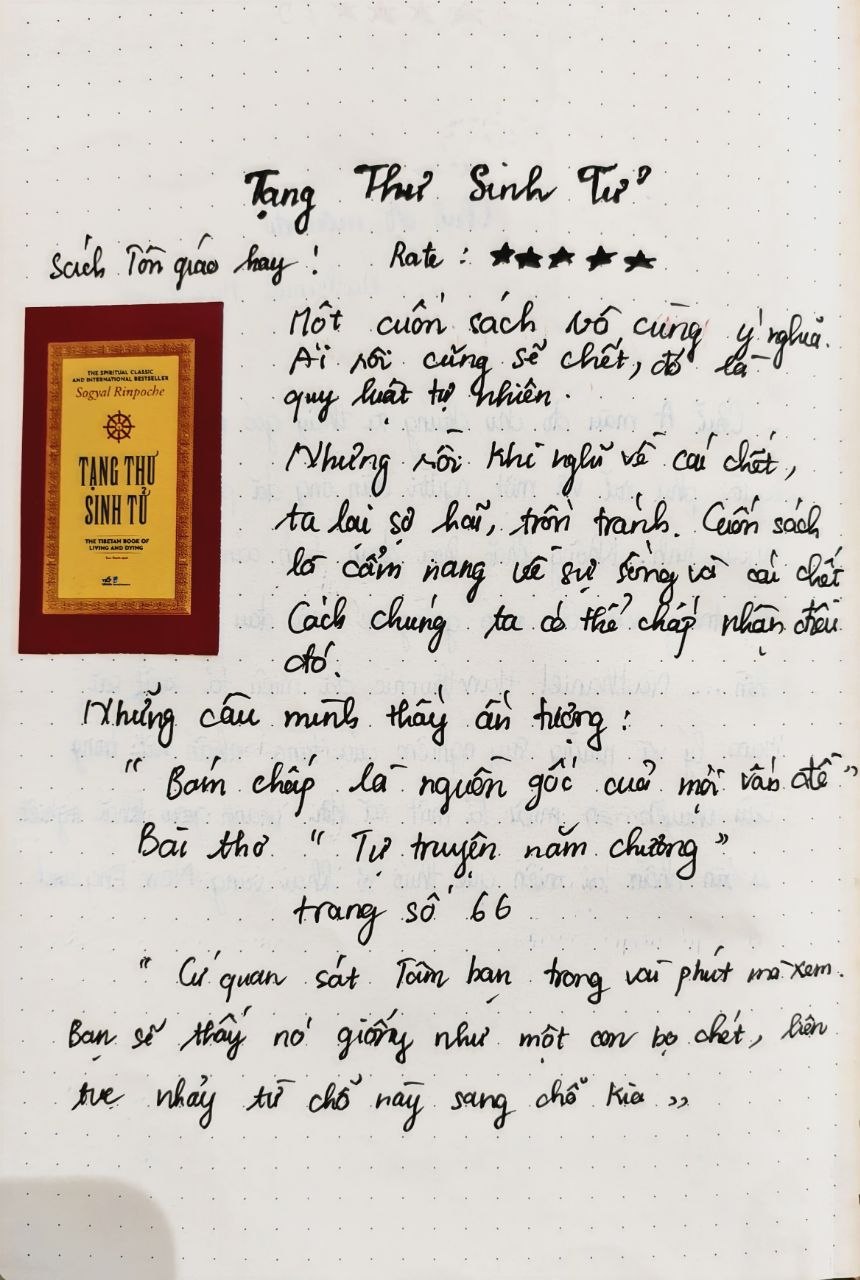 Tạng Thư Sinh Tử
Sách Tôn giáo hay !
Rate : ★★★★★
THE SPIRITUAL CLASSIC
AND INTERNATIONAL BESTSELLER
Sogyal Rinpoche
TẠNG THƯ
SINH TỬ
THE TIBETAN BOOK OF
LIVING AND DYING
Một cuốn sách vô cùng ý nghĩa.
Ai rồi cũng sẽ chết, đó là
quy luật tự nhiên.
Nhưng rồi khi nghĩ về cái chết,
ta lại sợ hãi, trốn tránh. Cuốn sách
là cẩm nang về sự sống và cái chết
Cách chúng ta có thể chấp nhận điều
đó.
Những câu mình thấy ấn tượng :
“ Bám chấp là nguồn gốc của mọi vấn đề ”
Bài thơ “ Tự truyện năm chương ”
trang số 66
“ Cứ quan sát Tâm bạn trong vài phút mà xem.
Bạn sẽ thấy nó giống như một con bọ chét, liên
tục nhảy từ chỗ này sang chỗ kia ”